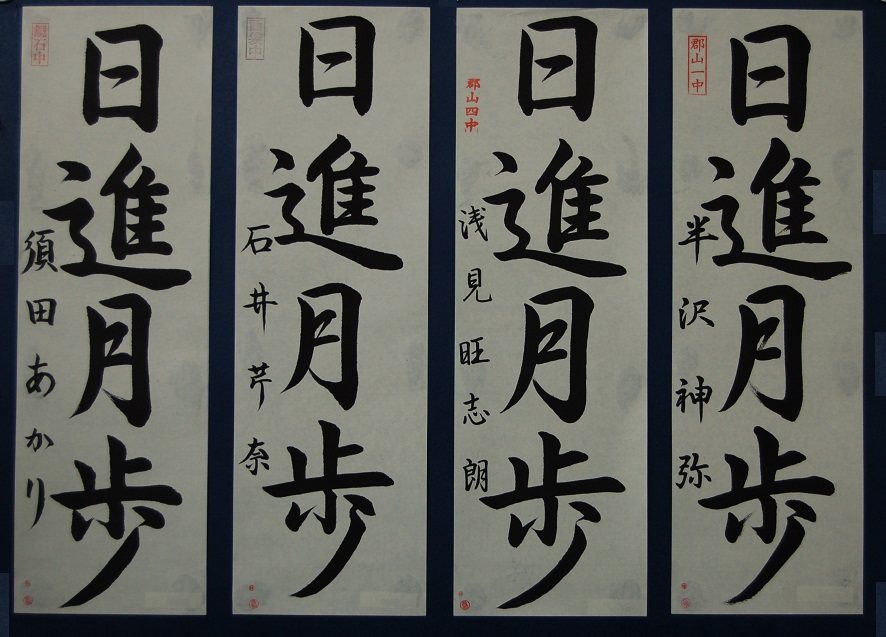 日進月歩
郡山一中
半沢神弥
日進月歩
郡山四中
浅見旺志朗
日進月歩
石井芹奈
日進月歩
鏡石中
須田あかり